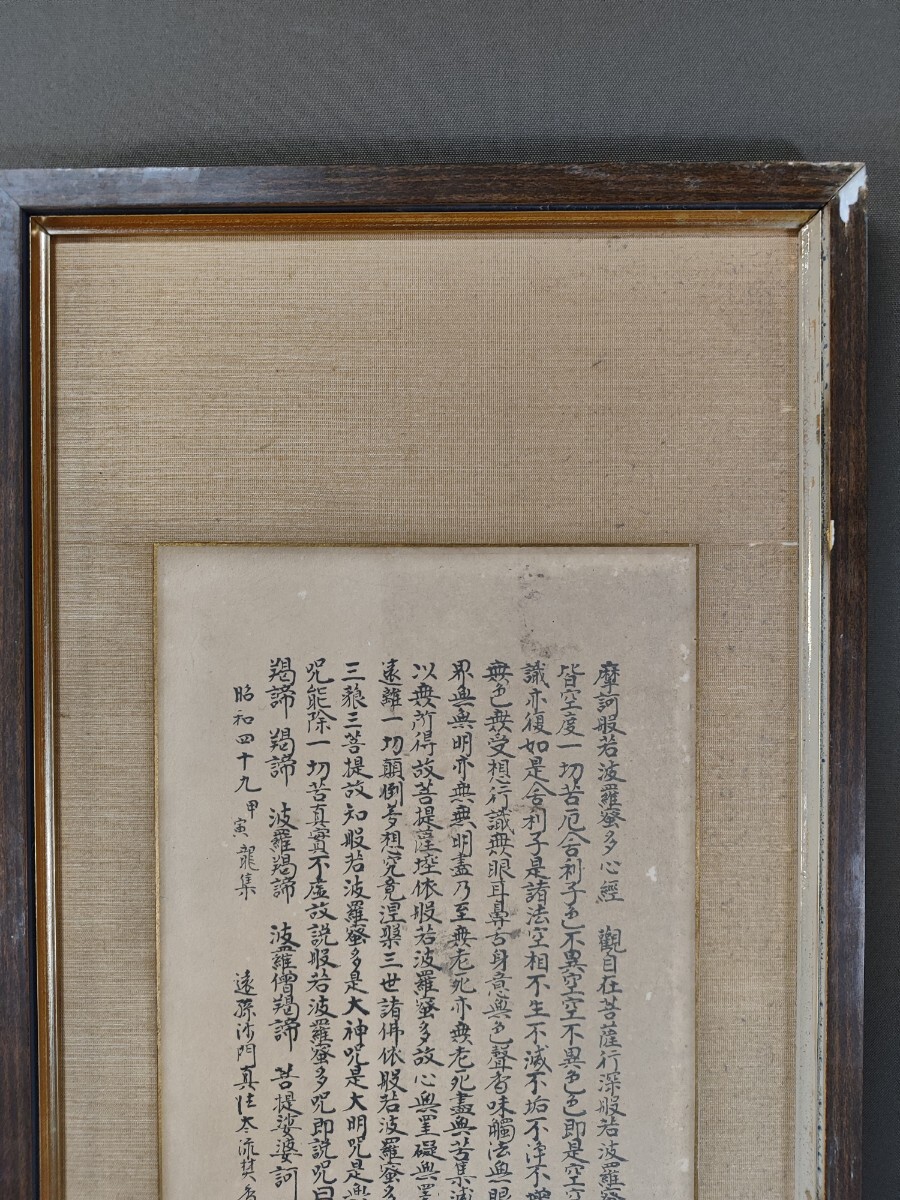 摩訶般若波羅蜜多心經　觀自在菩薩行深般若波羅蜜
皆空度一切苦厄舍利子色不異空空不異色色即是空空
識亦復如是舍利子是諸法空相不生不滅不垢不淨不增
無色無受想行識無眼耳鼻舌身意無色聲香味觸法無眼
界無無明亦無無明盡乃至無老死亦無老死盡無苦集滅
以無所得故菩提薩埵依般若波羅蜜多故心無罣礙無罣
遠離一切顛倒夢想究竟涅槃三世諸佛依般若波羅蜜多
三藐三菩提故知般若波羅蜜多是大神咒是大明咒是無
咒能除一切苦真實不虛故說般若波羅蜜多咒即說咒曰
羯諦　羯諦　波羅羯諦　波羅僧羯諦　菩提娑婆訶
昭和四十九甲寅龍集　遠孫沙門真